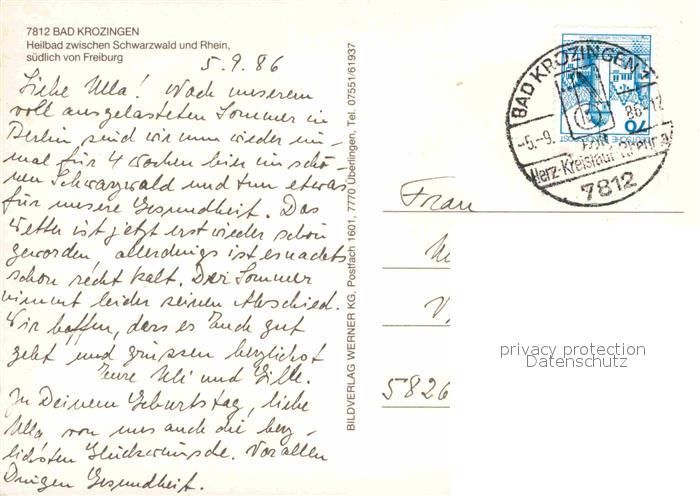 7812 BAD KROZINGEN
Heilbad zwischen Schwarzwald und Rhein,
südlich von Freiburg
5.9.86
Liebe Ulla! Nach unserem
voll ausgelasteten Sommer in
Berlin sind wir nun wieder ein-
mal für 4 Wochen hier im schö-
nen Schwarzwald und tun etwas
für unsere Gesundheit. Das
Wetter ist jetzt erst wieder schön
geworden, allerdings ist es nachts
schon recht kalt. Der Sommer
nimmt leider seinen Abschied.
Wir hoffen, dass es Euch gut
geht und grüssen herzlichst
Eure Uli und Gille.
Zu Deinem Geburtstag, liebe
Ulla, von uns auch die herz-
lichsten Glückwünsche. Vor allen
Dingen Gesundheit.
BILDVERLAG WERNER KG, Postfach 1601, 7770 Überlingen, Tel. 07551/61937
BAD KROZINGEN
-5.-9. 86-12
Herz-Kreislauf-Rheuma
7812
70
Frau
5826
privacy protection
Datenschutz